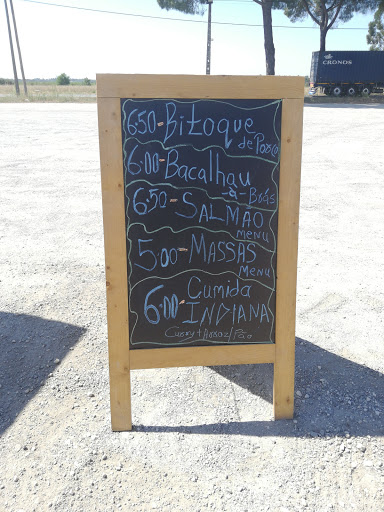 CRONOS
6,50-Bitoque
de Porco
6,00-Bacalhau
-à-Brás
6,50-SALMÃO
menu
5,00-MASSAS
Menu
6,00-Cumida
INDIANA
Curry+Arroz/Pão